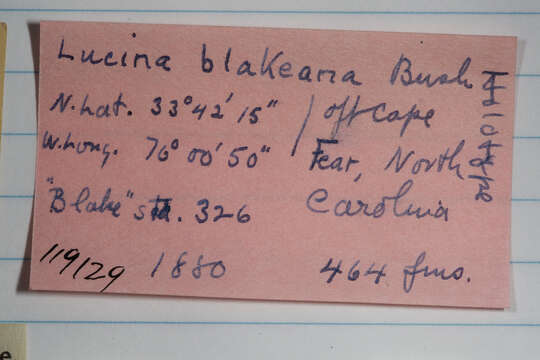 Lucina blakeana Bush
N. Lat. 33°42'15" / off Cape
W. Long. 76°00'50" Fear, North
"Blake" sta. 326 Carolina
119129 1880 464 fms.
Holotype
e